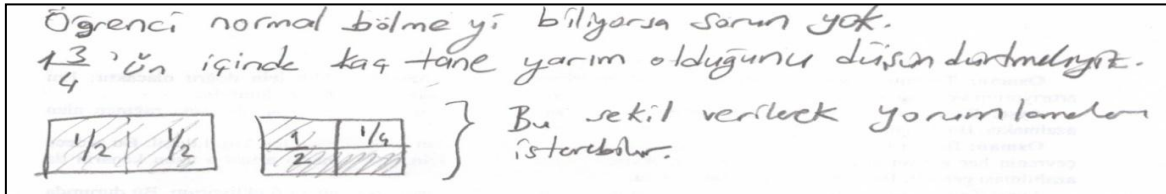 Öğrenci normal bölmeyi biliyorsa sorun yok.
1 3/4 'ün içinde kaç tane yarım olduğunu düşündürtmeliyiz.
1/2 1/2 1/2 1/4 } Bu şekil verilerek yorumlamaları
istenebilir.